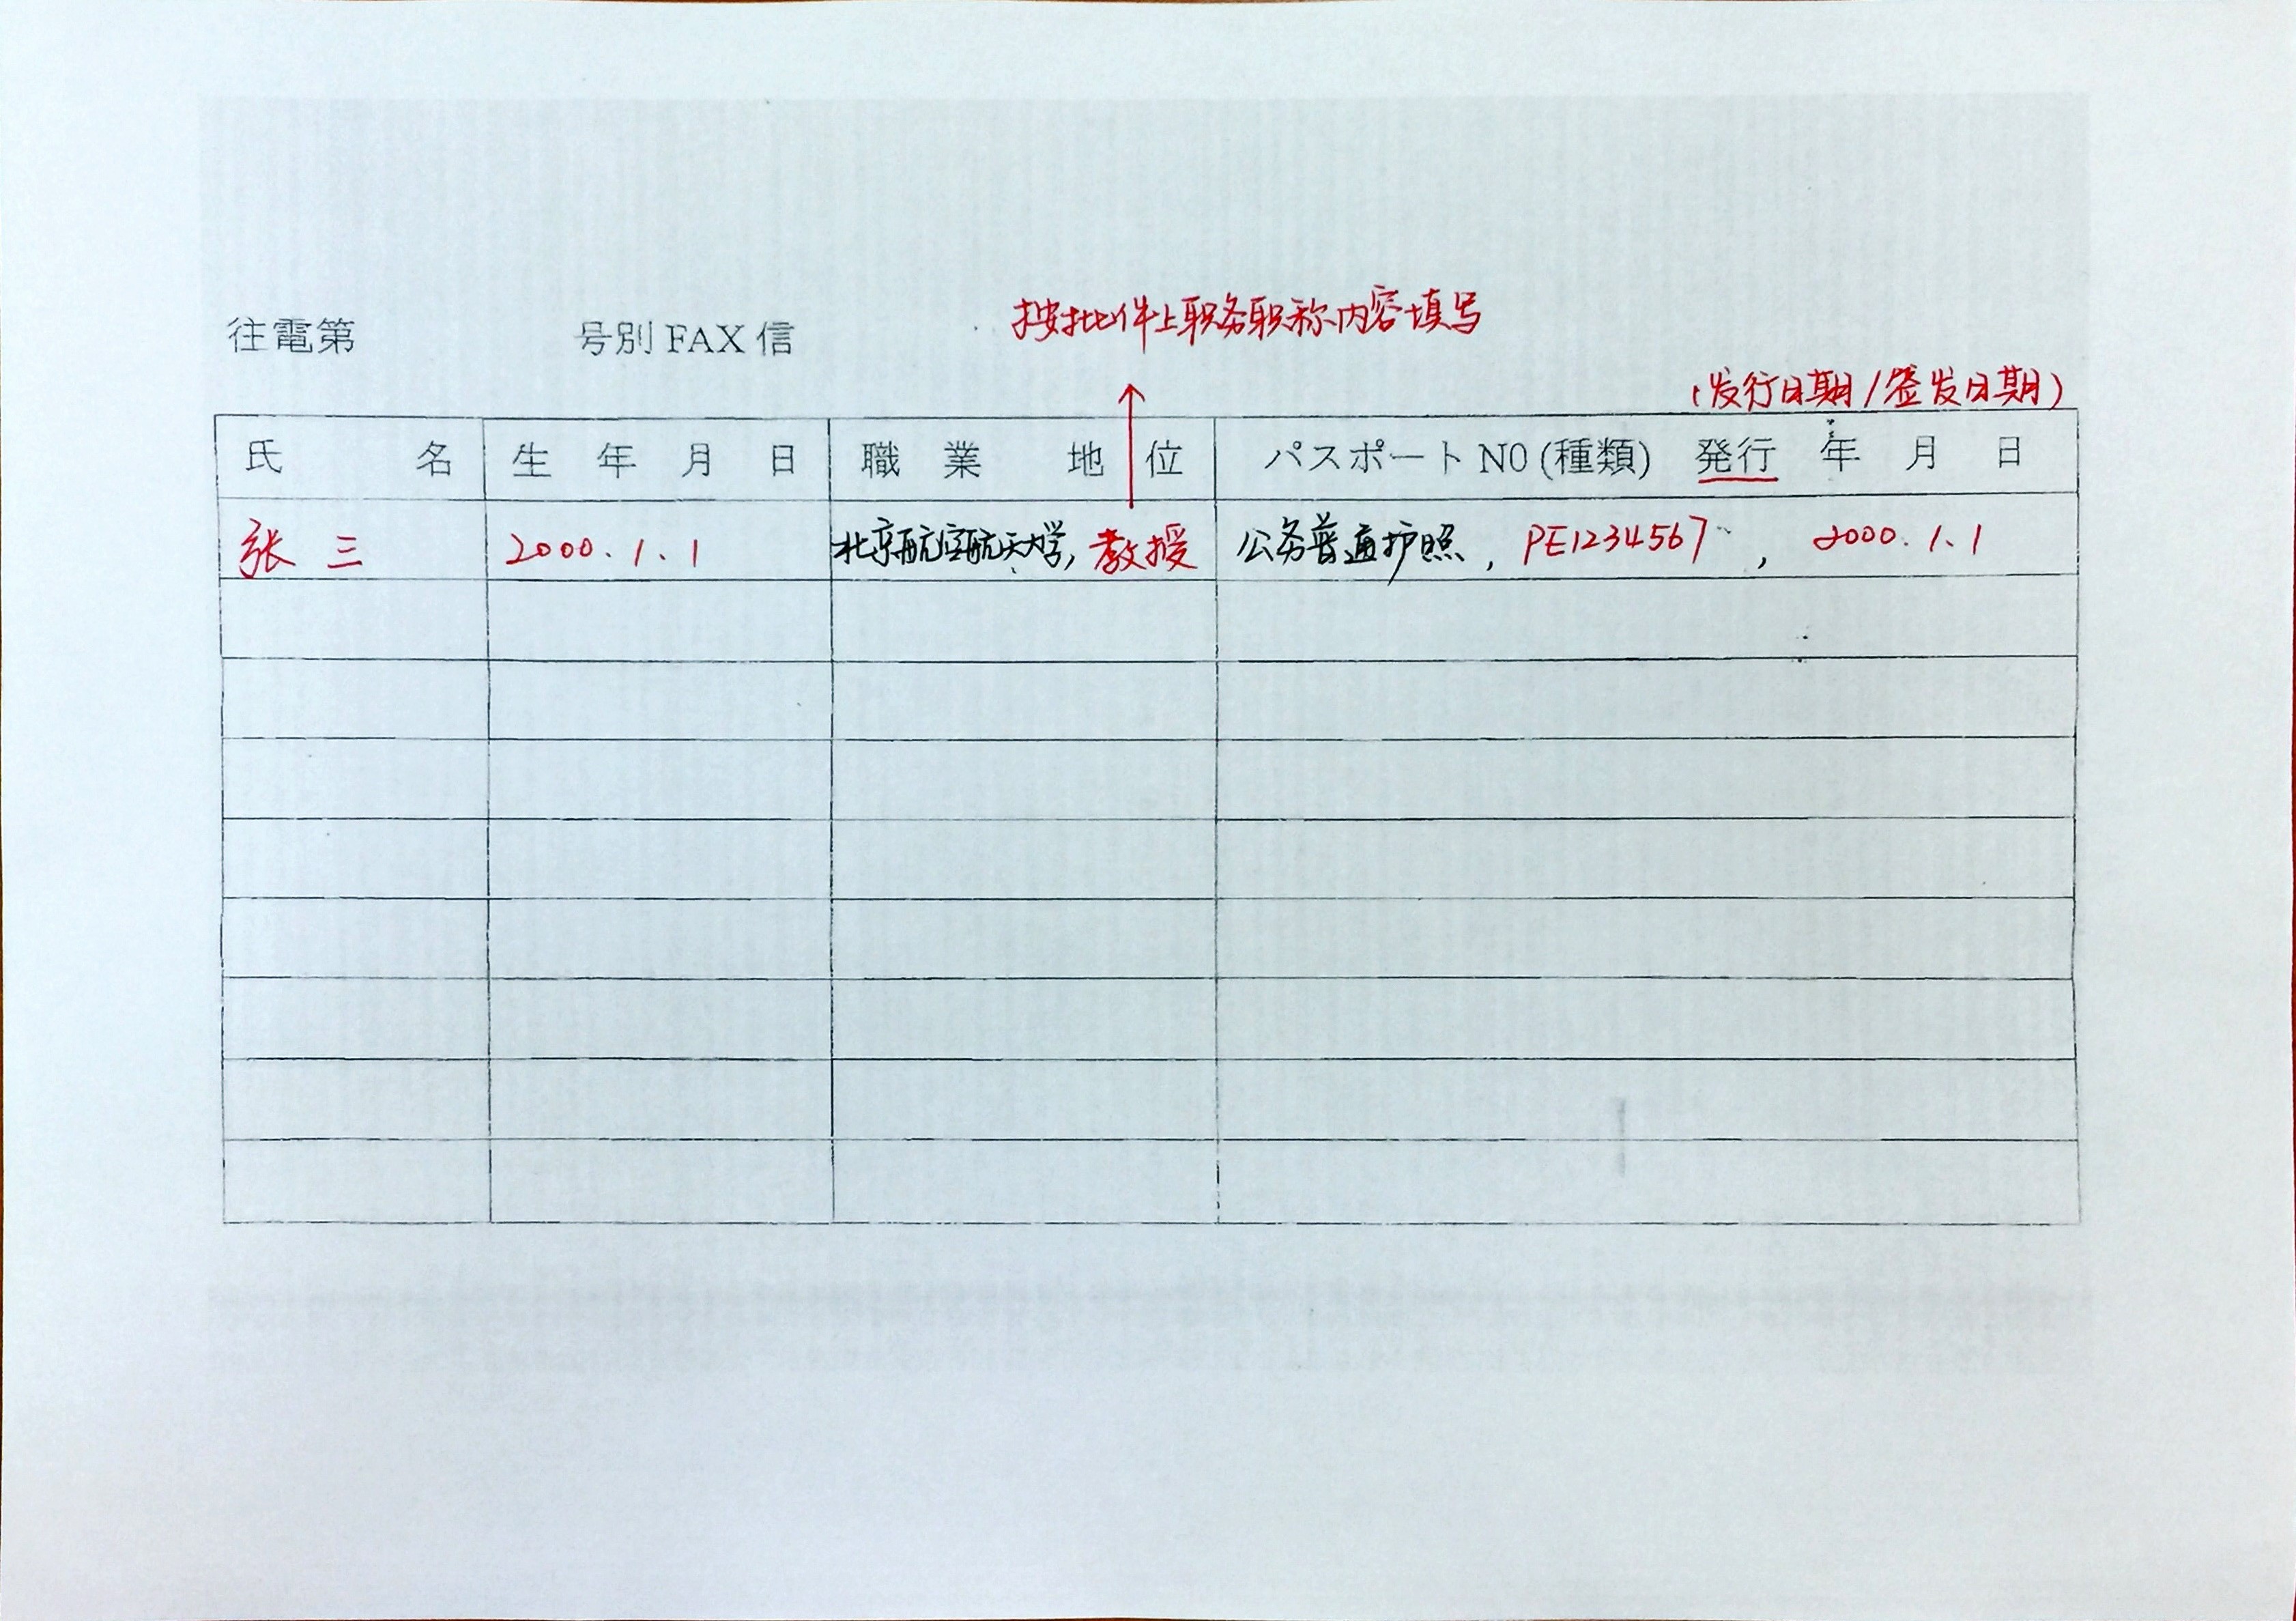 按批件上职务职称内容填写
往電第 号別 FAX 信
(发行日期/签发日期)
氏 名 生 年 月 日 職 業 地 位 パスポート N0 (種類) 発行 年 月 日
张 三 2000.1.1 北京航空航天大学, 教授 公务普通护照, PE1234567, 2000.1.1